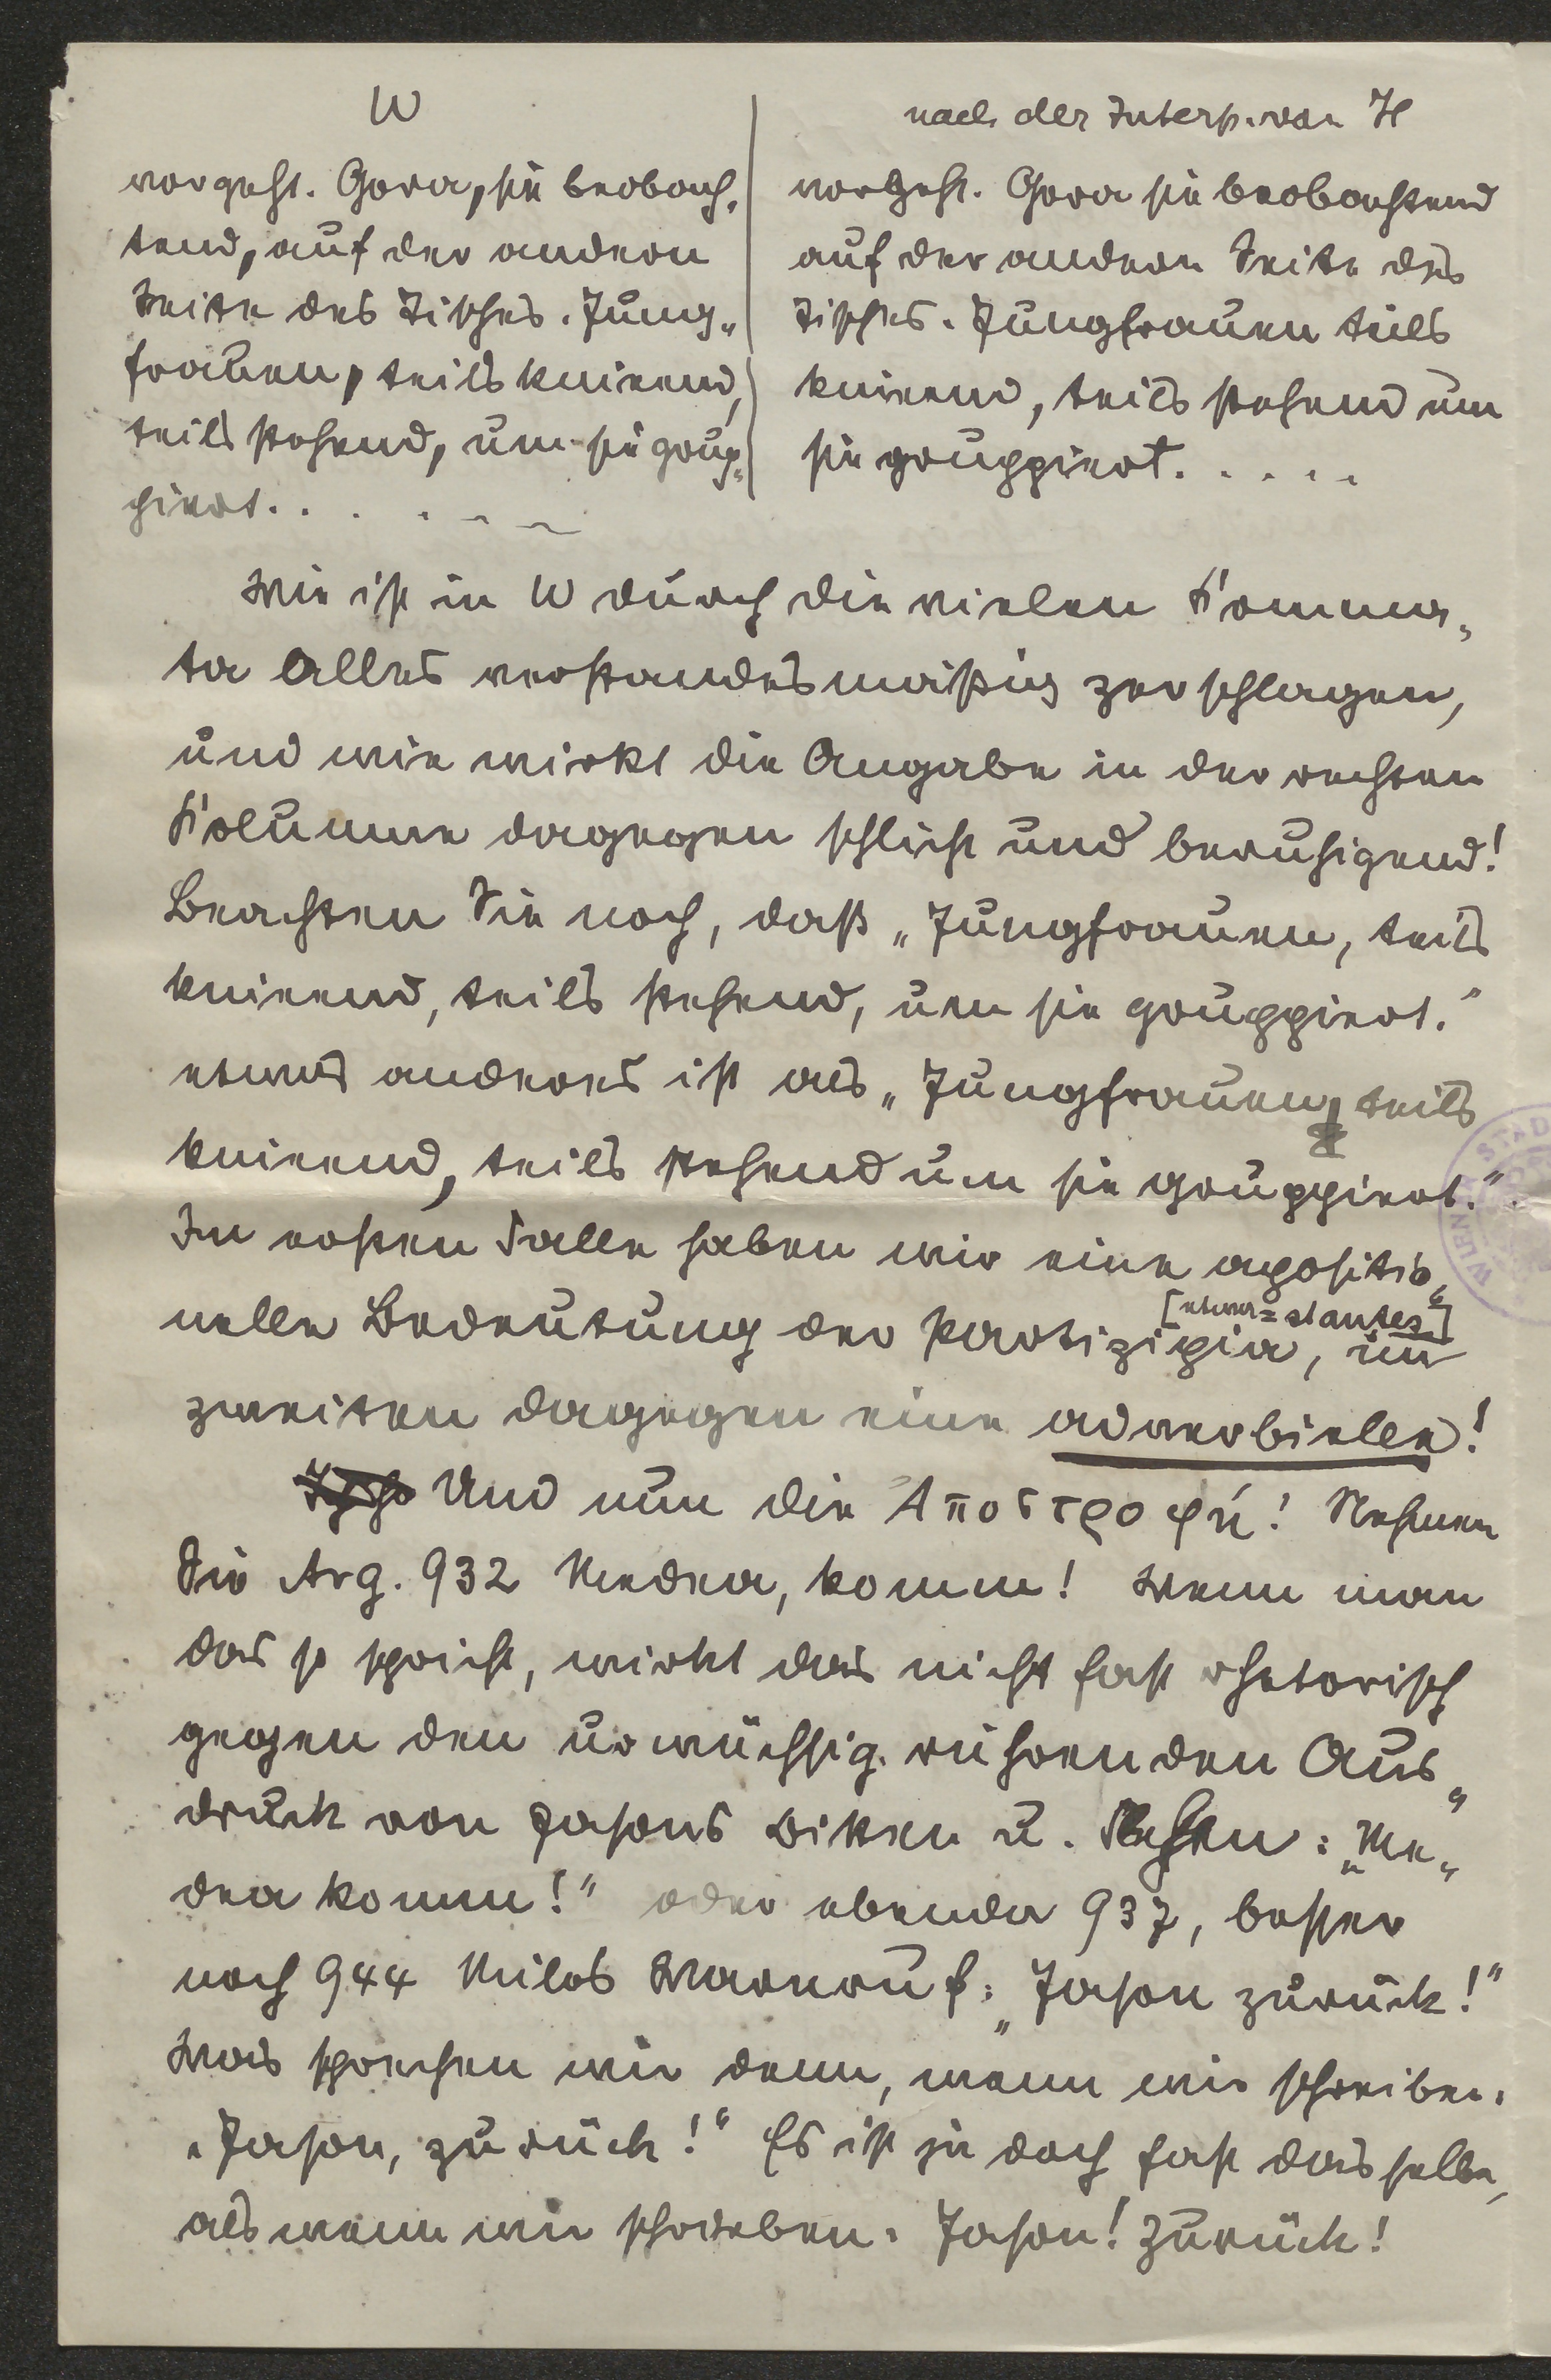 W
vorgeht. Gora, sie beobach„
tend, auf der andern
Seite des Tisches. Jung„
frauen, teils knieend,
teils stehend, um sie grup„
piert. . . . . .
nach der Interp. von H
vorgeht. Gora sie beobachtend
auf der andern Seite des
Tisches. Jungfrauen teils
knieend, teils stehend um
sie gruppiert. . . . .
Wie ist in W durch die vielen Komma„
ta alles verstandesmäßig zerschlagen,
und wie wirkt die Angabe in der rechten
Kolumne dagegen schlicht und beruhigend!
Beachten Sie noch, daß „Jungfrauen, teils
knieend, teils stehend, um sie gruppiert."
etwas anderes ist als „Jungfrauen teils
knieend, teils stehend um sie gruppiert."
Im ersten Falle haben wir eine apositio„
nelle Bedeutung der Partizipia, im
[etwa = stantes]
zweiten dagegen eine adverbielle!
Und nun die Αποστροφή! Nehmen
Sie Arg. 932 Medea, komm! Wenn man
das so spricht, wirkt das nicht fast rhetorisch
gegen den urwüchsig. rührenden Aus„
druck von Jasons Bitten u. Flehen: „Me„
dea komm!" oder ebenda 937, besser
noch 944 Milos Warnruf: „Jason zurück!"
Was sprechen wir denn, wenn wir schreiben:
„Jason, zurück!" Es ist ja doch fast dasselbe,
als wenn wir schrieben: Jason! Zurück!
WIEN STAD